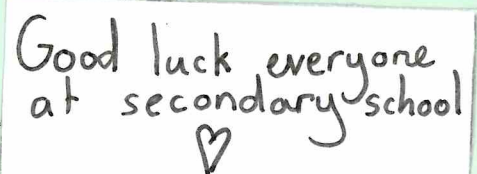 Good luck everyone
at secondary school
♡